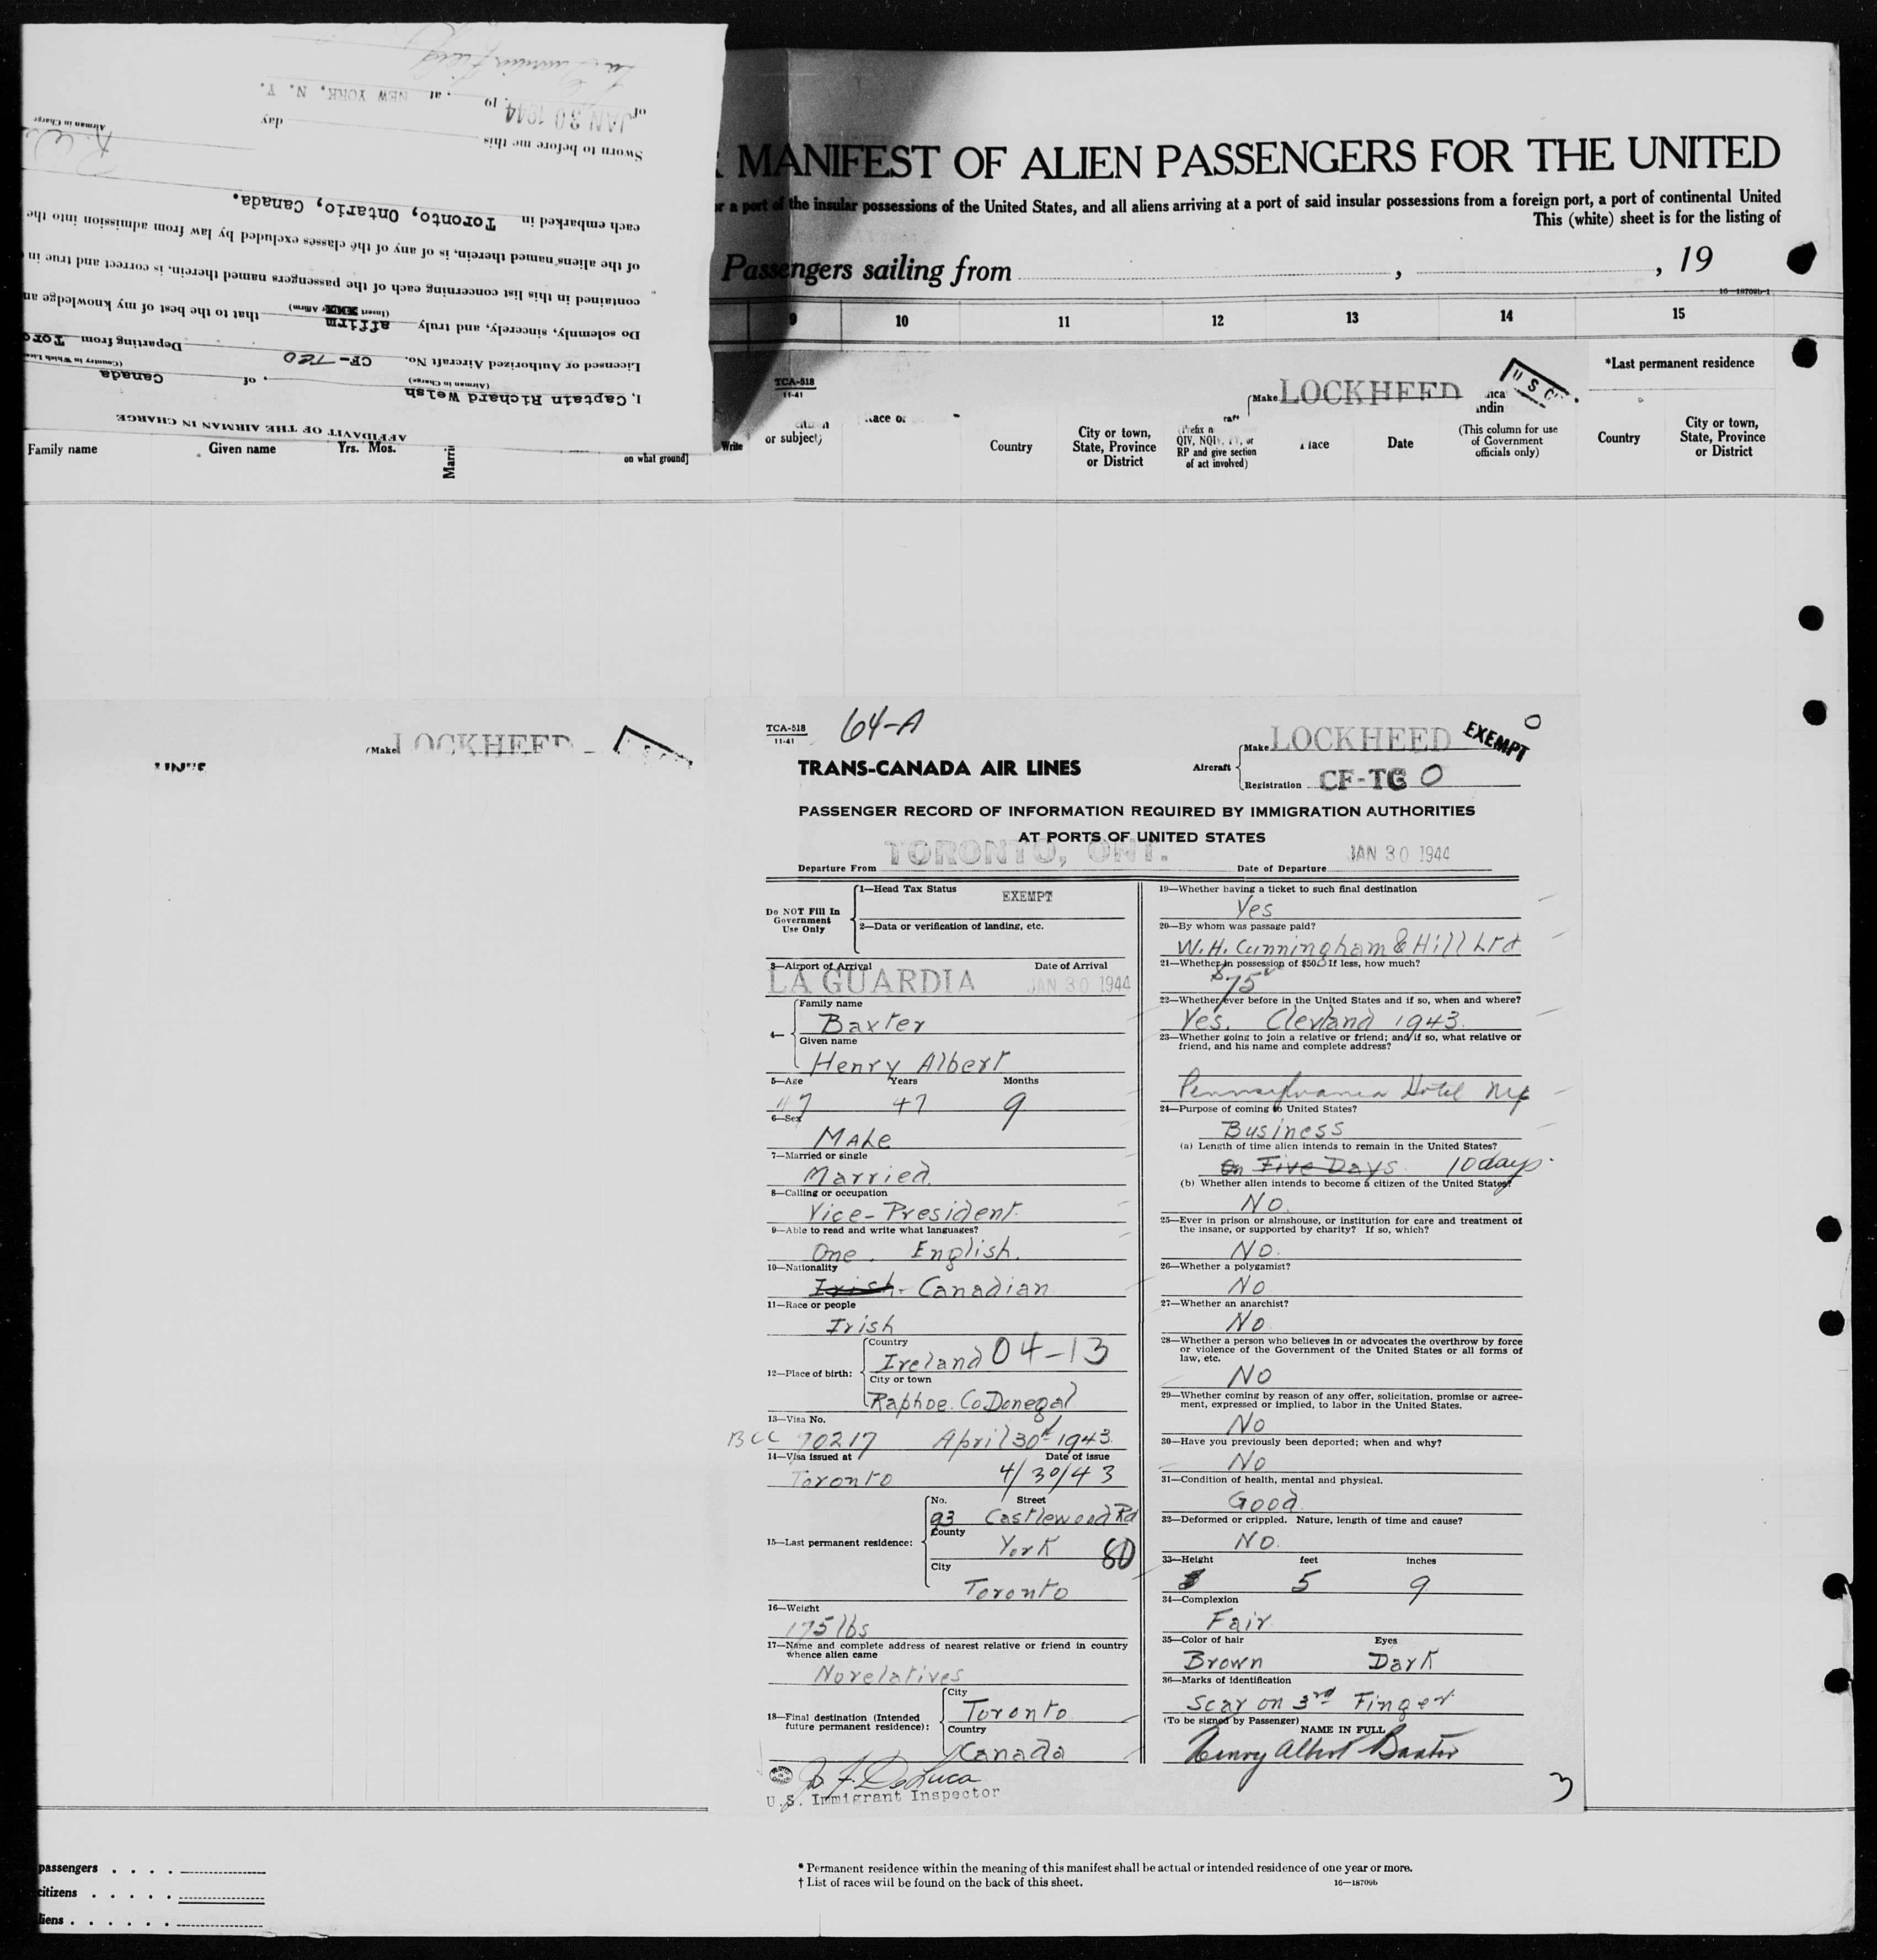 La Guardia Field
of JAN 30 1944, 19 , at NEW YORK, N. Y.
Sworn to before me this day
Airman in Charge
each embarked in Toronto, Ontario, Canada.
of the aliens named therein, is of any of the classes excluded by law from admission into the
contained in this list concerning each of the passengers named therein, is correct and true in
Do solemnly, sincerely, and truly affirm that to the best of my knowledge an
(Insert XXX Affirm)
Licensed or Authorized Aircraft No. CF-TCO Departing from Toro
(Airman in Charge) (Country in Which Lice
I, Captain Richard Welsh, of Canada
AFFIDAVIT OF THE AIRMAN IN CHARGE
MANIFEST OF ALIEN PASSENGERS FOR THE UNITED
or a port of the insular possessions of the United States, and all aliens arriving at a port of said insular possessions from a foreign port, a port of continental United
This (white) sheet is for the listing of
Passengers sailing from , , 19
16—18709b-1
9 10 11 12 13 14 15
*Last permanent residence
TCA-518
11-41
(Make LOCKHEED
U S C.
or subject)
Country
City or town, State, Province or District
QIV, NQIV, PV, or RP and give section of act involved)
Place
Date
(This column for use of Government officials only)
Country
City or town, State, Province or District
Family name Given name Yrs. Mos.
Marri
on what ground]
Write
(Make LOCKHEED
TCA-518
11-41
64-A
Make LOCKHEED
EXEMPT
0
TRANS-CANADA AIR LINES
Aircraft
Registration CF-TC O
PASSENGER RECORD OF INFORMATION REQUIRED BY IMMIGRATION AUTHORITIES
AT PORTS OF UNITED STATES
Departure From TORONTO, ONT. Date of Departure JAN 30 1944
Do NOT Fill In Government Use Only
1—Head Tax Status EXEMPT
2—Data or verification of landing, etc.
3—Airport of Arrival Date of Arrival
LA GUARDIA JAN 30 1944
4— Family name
Baxter
Given name
Henry Albert
5—Age Years Months
47 47 9
6—Sex
Male
7—Married or single
Married
8—Calling or occupation
Vice-President
9—Able to read and write what languages?
One. English.
10—Nationality
Irish. Canadian
11—Race or people
Irish
12—Place of birth: Country
Ireland 04-13
City or town
Raphoe. Co Donegal
13—Visa No.
BCC 70217 April 30th 1943
14—Visa issued at Date of issue
Toronto 4/30/43
15—Last permanent residence: No. Street
93 Castlewood Rd
County
York 80
City
Toronto
16—Weight
175 lbs
17—Name and complete address of nearest relative or friend in country whence alien came
No relatives
18—Final destination (Intended future permanent residence): City
Toronto
Country
Canada
J. F. DeLuca
U.S. Immigrant Inspector
19—Whether having a ticket to such final destination
Yes
20—By whom was passage paid?
W.H. Cunningham & Hill Ltd
21—Whether in possession of $50. If less, how much?
$75
22—Whether ever before in the United States and if so, when and where?
Yes. Clevland 1943.
23—Whether going to join a relative or friend; and if so, what relative or friend, and his name and complete address?
Pennsylvania Hotel NY
24—Purpose of coming to United States?
Business
(a) Length of time alien intends to remain in the United States?
On Five Days. 10 days.
(b) Whether alien intends to become a citizen of the United States?
No.
25—Ever in prison or almshouse, or institution for care and treatment of the insane, or supported by charity? If so, which?
No.
26—Whether a polygamist?
No
27—Whether an anarchist?
No
28—Whether a person who believes in or advocates the overthrow by force or violence of the Government of the United States or all forms of law, etc.
No
29—Whether coming by reason of any offer, solicitation, promise or agreement, expressed or implied, to labor in the United States.
No
30—Have you previously been deported; when and why?
No
31—Condition of health, mental and physical.
Good
32—Deformed or crippled. Nature, length of time and cause?
No.
33—Height feet inches
5 9
34—Complexion
Fair
35—Color of hair Eyes
Brown Dark
36—Marks of identification
Scar on 3rd Finger
(To be signed by Passenger)
NAME IN FULL
Henry Albert Baxter
3
passengers . . . .
citizens . . . . .
liens . . . . . .
* Permanent residence within the meaning of this manifest shall be actual or intended residence of one year or more.
† List of races will be found on the back of this sheet.
16—18709b